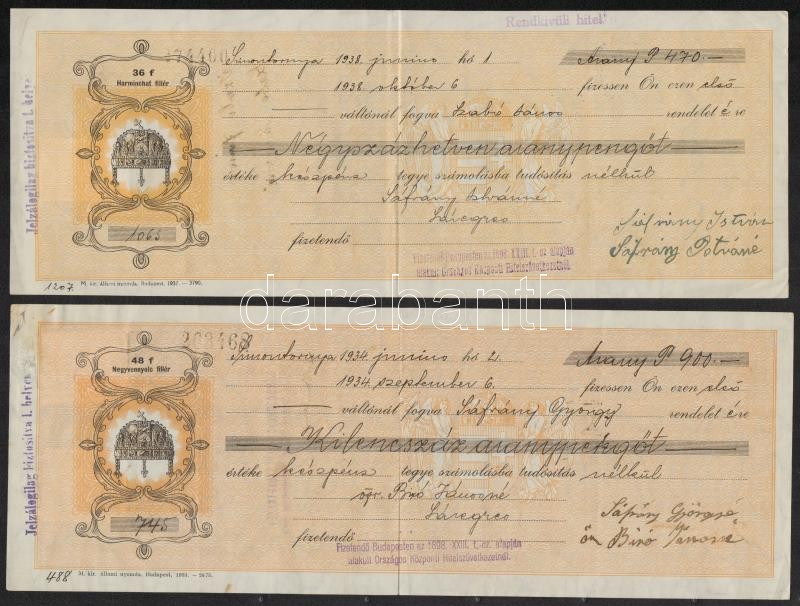 Rendkívüli hitel.
Jelzálogilag biztosítva I. helyen
36 f
Harminchat fillér
Simontornya 1938. junius hó 1
Arany P 470.—
1938. október 6 fizessen Ön ezen első
váltónál fogva Szabó János rendelet é re
Négyszázhetven aranypengőt
értéke készpénz tegye számolásba tudósítás nélkül
Sáfrány Istvánné
fizetendő
Sáfrány István
Sáfrány Istváné
1065
Fizetendő Budapesten az 1898. XXIII. t.-cz. alapján
alakult Országos Központi Hitelszövetkezetnél.
1207.
M. kir. állami nyomda, Budapest, 1937. — 3790.
darabanth
Jelzálogilag biztosítva I. helyen
48 f
Negyvennyolc fillér
Simontornya 1934. junius hó 2.
Arany P 900.—
1934. szeptember 6. fizessen Ön ezen első
váltónál fogva Sáfrány György rendelet é re
Kilencszáz aranypengőt
értéke készpénz tegye számolásba tudósítás nélkül
özv. Biró Jánosné
fizetendő
Sáfrány György
özv Biró Jánosné
745
Fizetendő Budapesten az 1898. XXIII. t.-cz. alapján
alakult Országos Központi Hitelszövetkezetnél.
488
M. kir. állami nyomda, Budapest, 1931. — 2475.